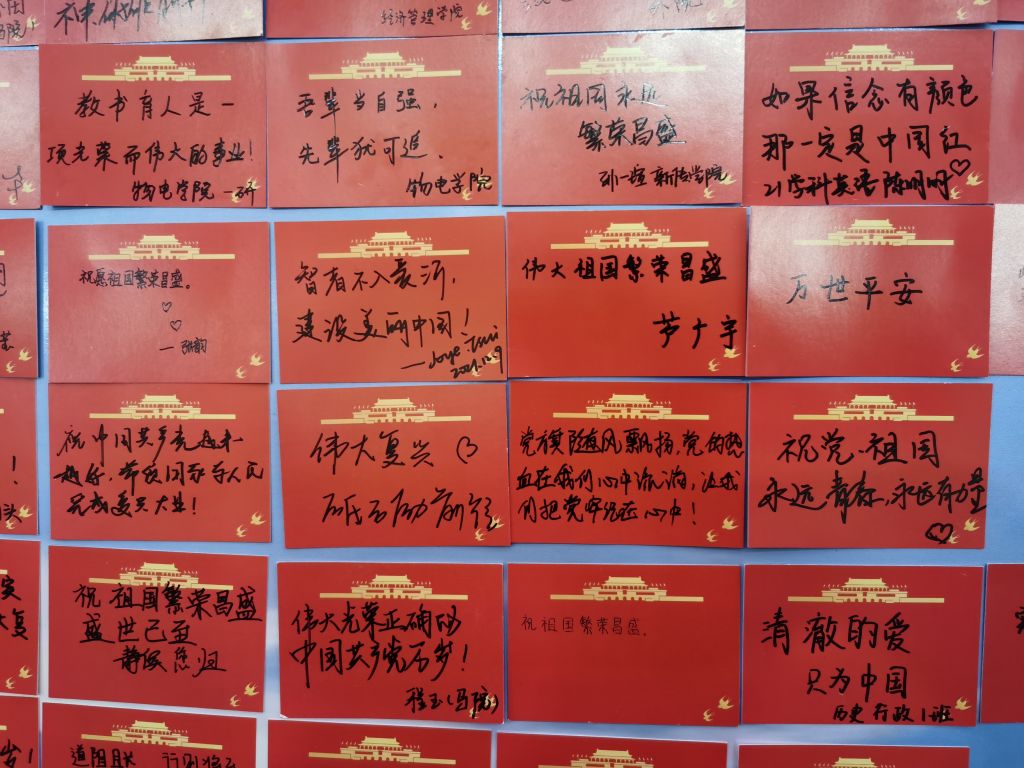 经济管理学院
教书育人是一
项光荣而伟大的事业!
物电学院 一研
吾辈当自强,
先辈犹可追.
物电学院
祝祖国永远
繁荣昌盛
新传学院
如果信念有颜色
那一定是中国红
21学科英语 陈明明
祝愿祖国繁荣昌盛。
—张韵
智者不入爱河,
建设美丽中国!
2021.12.9
伟大祖国繁荣昌盛
芦十宇
万世平安
祝中国共产党越来
越好,带领国家与人民
完成复兴大业!
伟大复兴
砥砺前行
党旗随风飘扬,党的热
血在我们心中流淌,让我
们把党牢记在心中!
祝党、祖国
永远青春,永远有力量
祝祖国繁荣昌盛
盛世已至
静候您归
伟大光荣正确的
中国共产党万岁!
程玉(马院)
祝祖国繁荣昌盛.
清澈的爱
只为中国
历史 行政1班